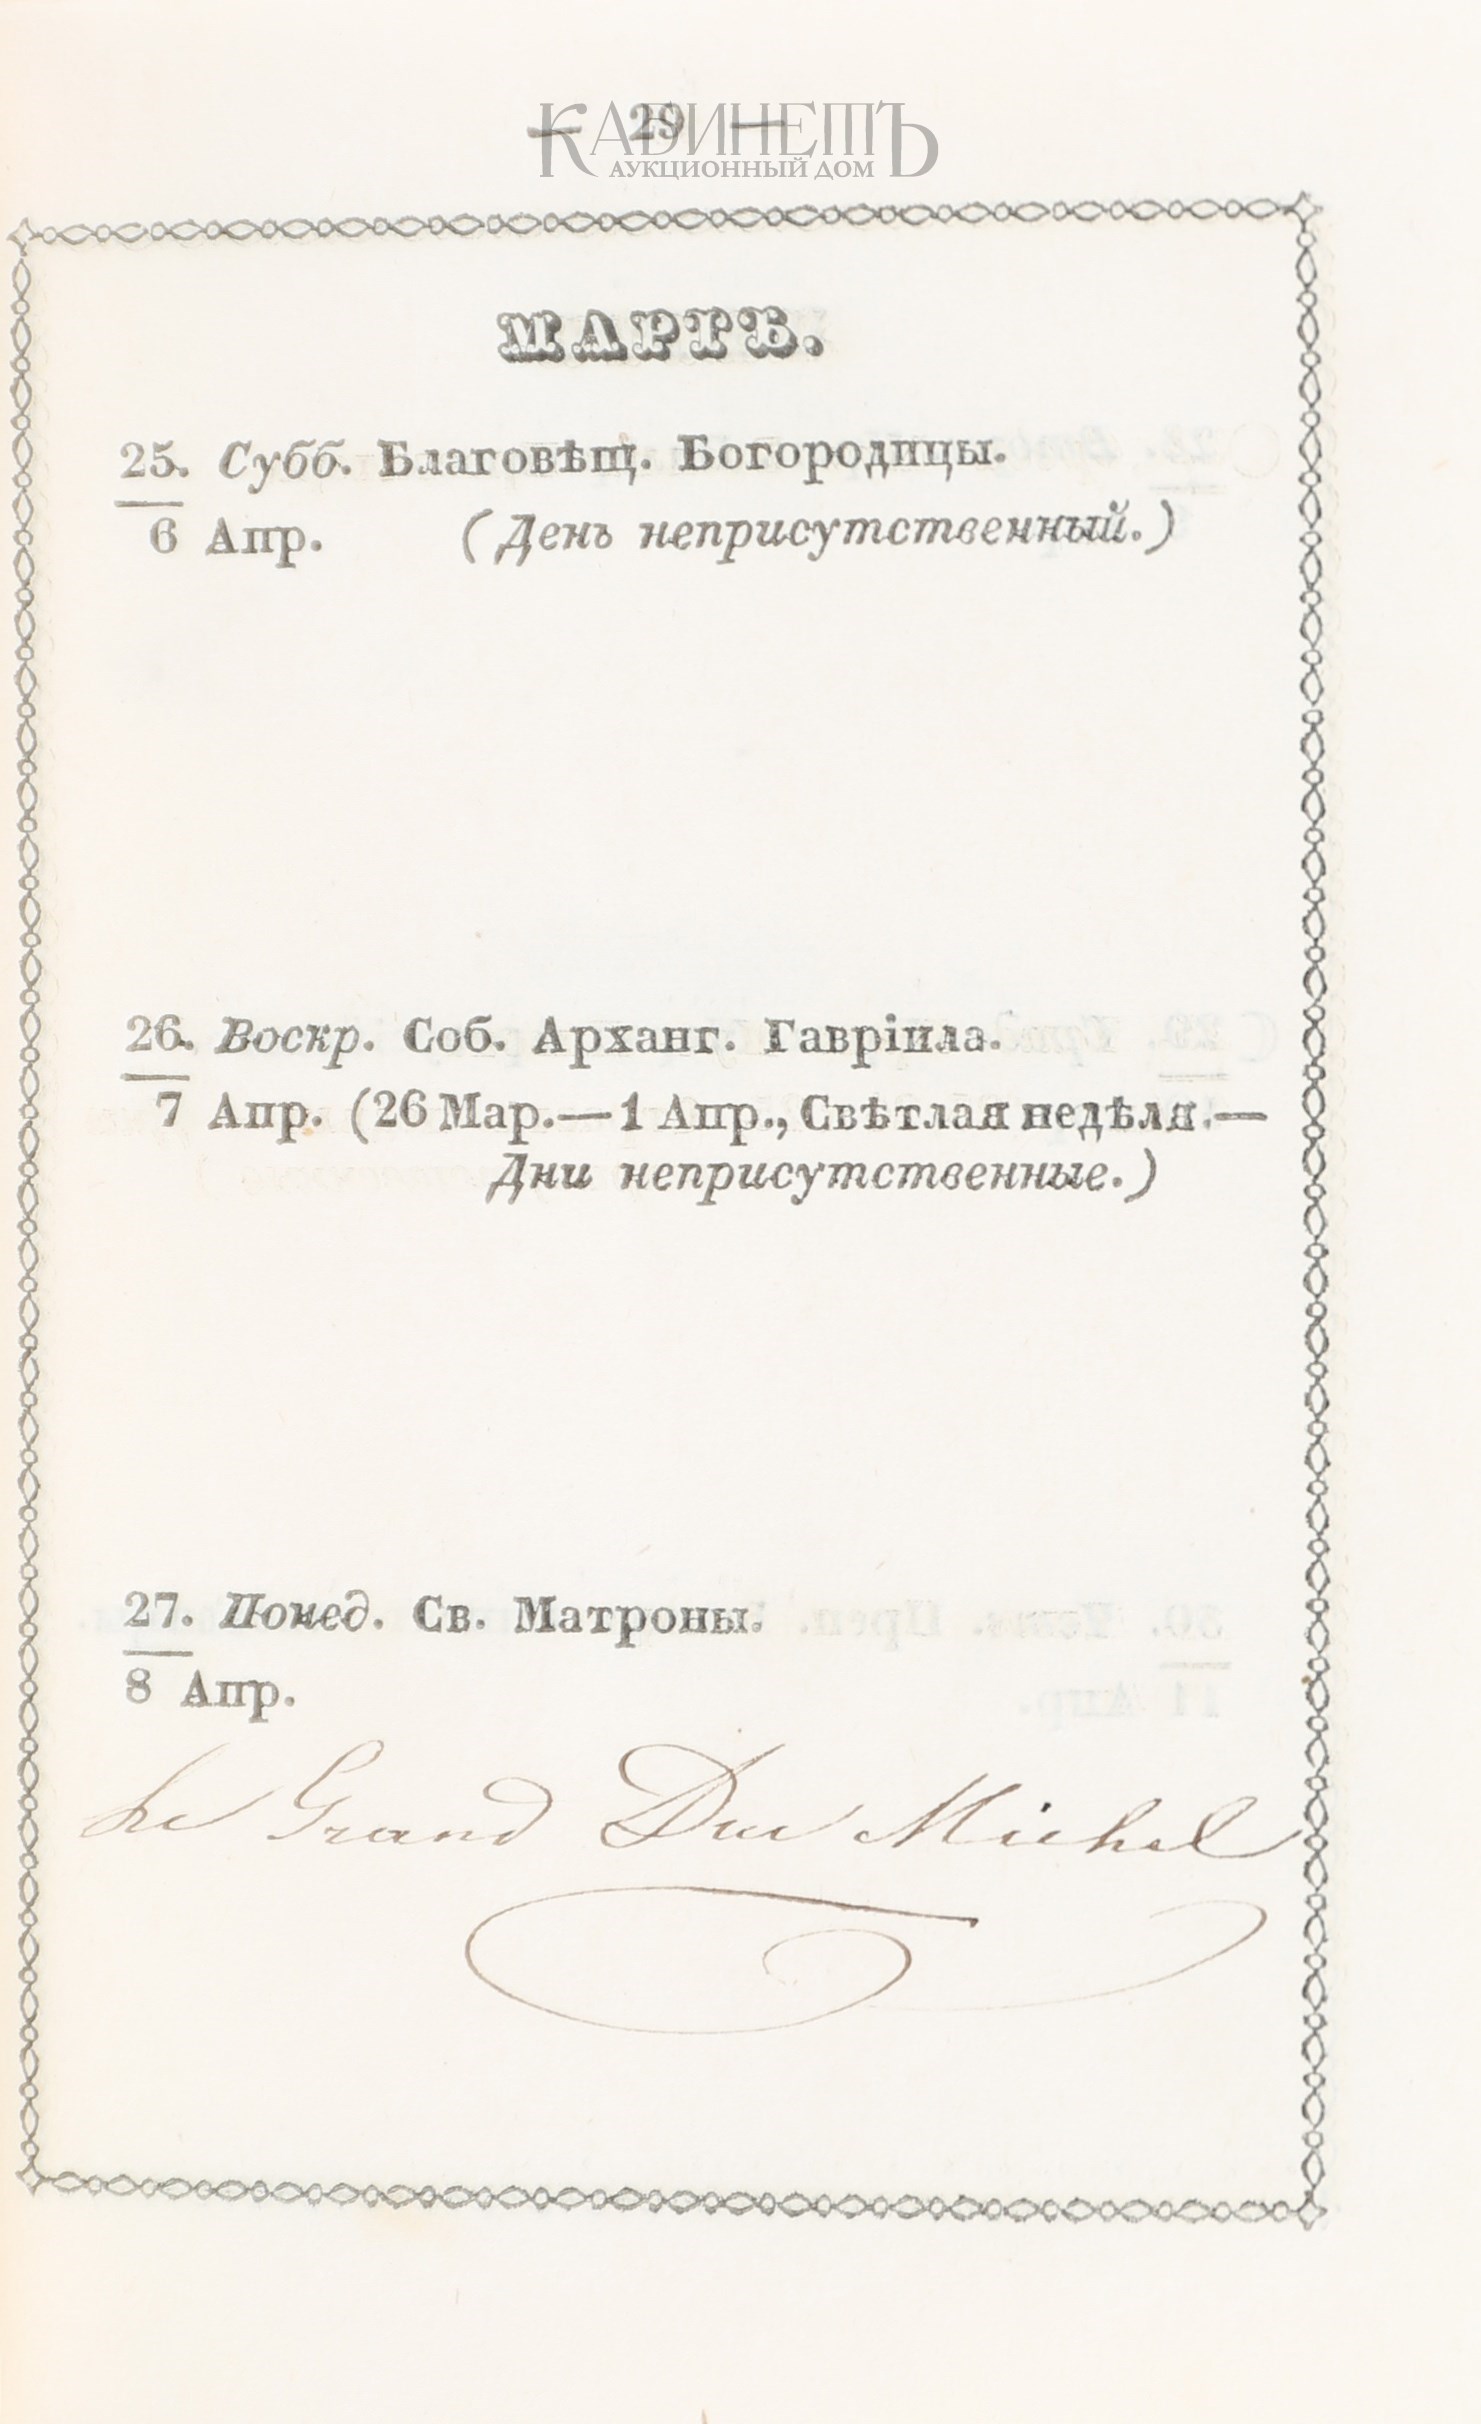 — 29 —
КАБИНЕТЪ
АУКЦИОННЫЙ ДОМ
МАРТЪ.
25. Субб. Благовѣщ. Богородицы.
6 Апр. (День неприсутственный.)
26. Воскр. Соб. Арханг. Гавріила.
7 Апр. (26 Мар.—1 Апр., Свѣтлая недѣля.—
Дни неприсутственные.)
27. Понед. Св. Матроны.
8 Апр.
Le Grand Duc Michel